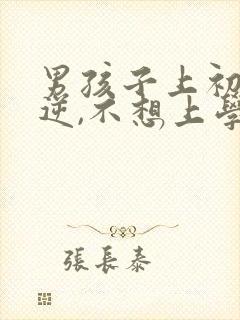 男孩子上初
逆,不想上學
張長泰